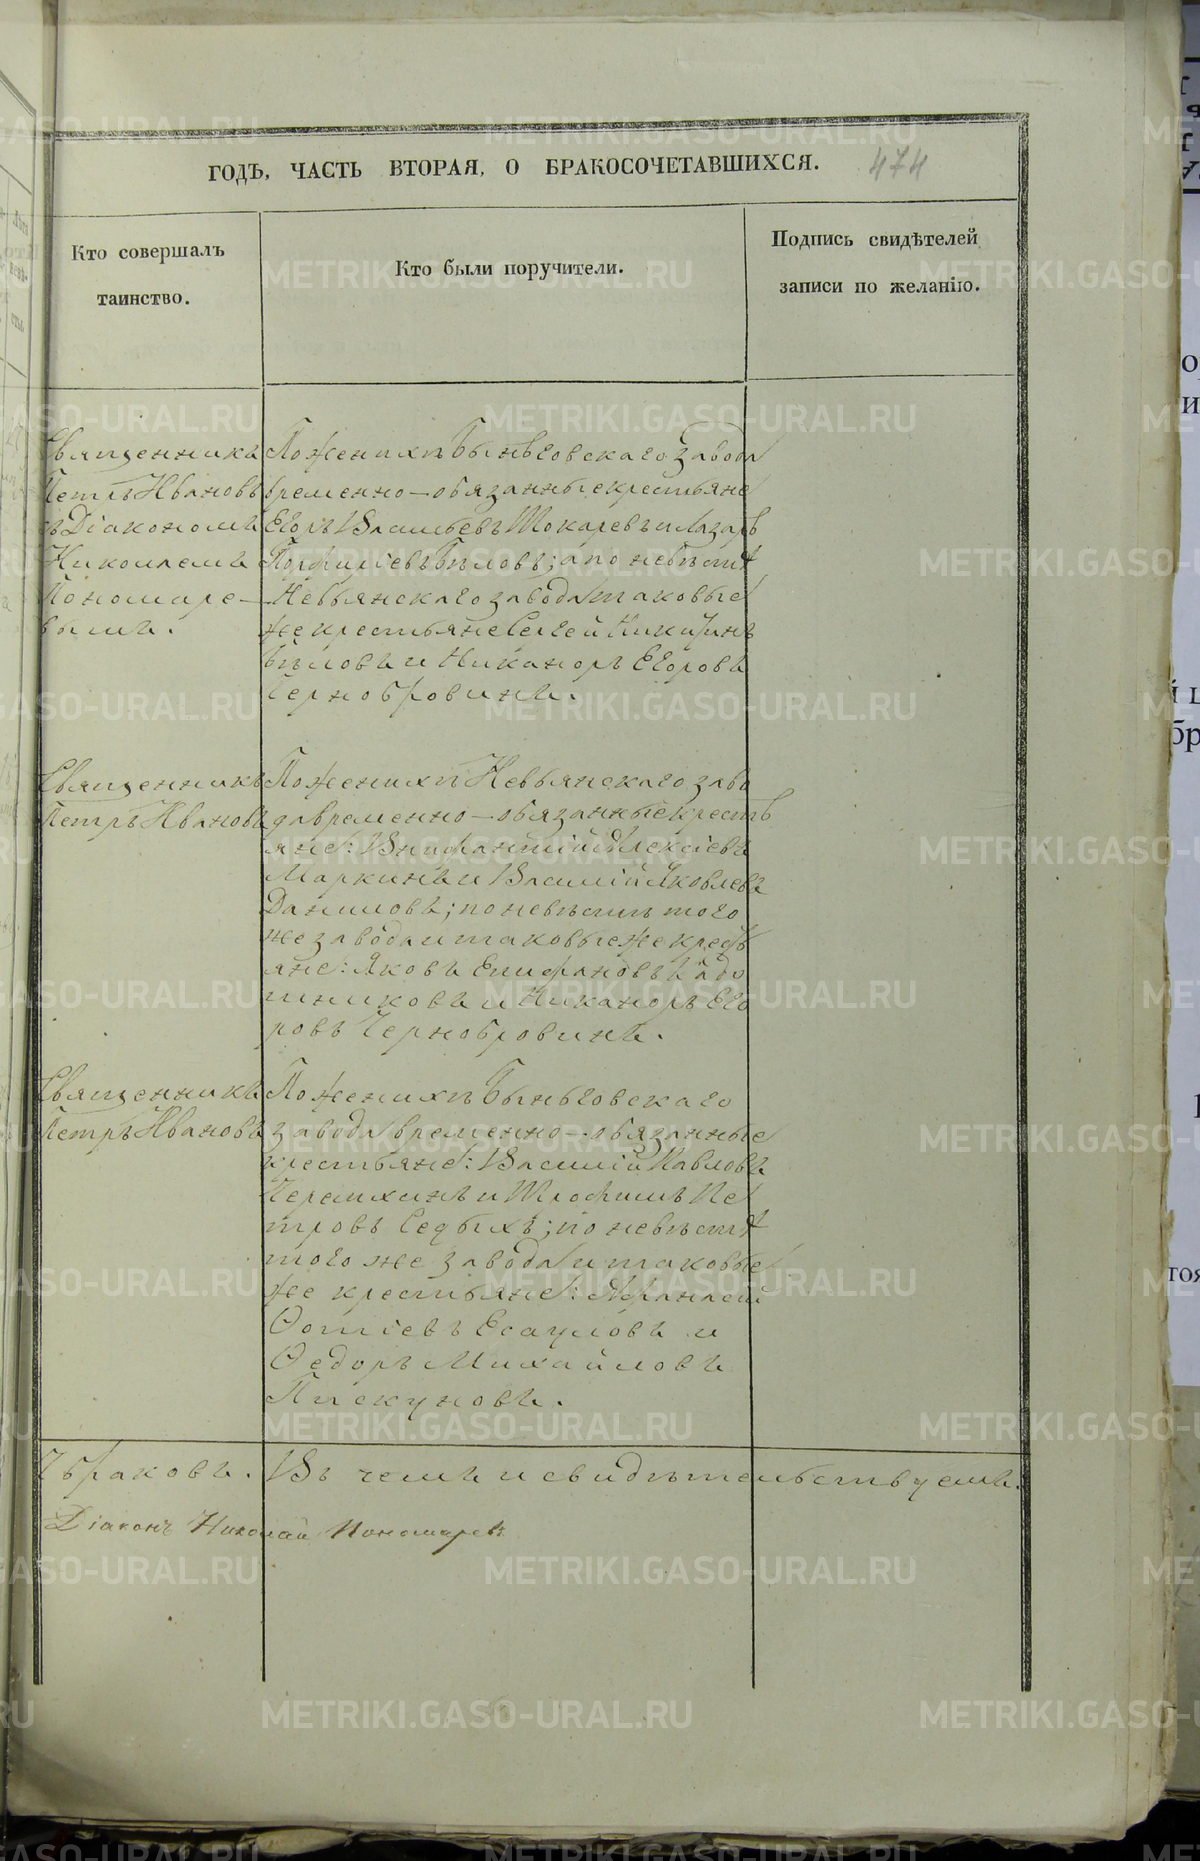 ГОДЪ, ЧАСТЬ ВТОРАЯ, О БРАКОСОЧЕТАВШИХСЯ. 474
Кто совершалъ
таинство.
Кто были поручители.
Подпись свидѣтелей
записи по желанію.
Священникъ
Петръ Ивановъ
съ Діакономъ
Николаемъ
Пономаре-
вымъ.
По женихѣ Быньговскаго завода
временно-обязанные крестьяне
Егоръ Васильевъ Токаревъ и Лазарь
Порфирьевъ Бѣловъ; а по невѣстѣ
Невьянскаго завода таковые
же крестьяне Сергей Никитинъ
Бѣловъ и Никаноръ Егоровъ
Чернобровинъ.
Священникъ
Петръ Ивановъ
По женихѣ Невьянскаго заво
да временно-обязанные кресть
яне: Внифантій Алексіевъ
Маркинъ и Василій Яковлевъ
Даниловъ; по невѣстѣ того
же завода и таковые же кресть
яне: Яковъ Епифановъ
шниковъ и Никаноръ Его
ровъ Чернобровинъ.
Священникъ
Петръ Ивановъ
По женихѣ Быньговскаго
завода временно-обязанные
крестьяне: Василій Павловъ
Черемхинъ и Трофимъ Пе
тровъ Седыхъ; по невѣстѣ
того же завода и таковые
же крестьяне: Афанасій
Ѳотіевъ Есауловъ и
Ѳедоръ Михайловъ
Пискуновъ.
браковъ. Въ чемъ и свидѣтельствуемъ.
Діаконъ Николай Пономаревъ
METRIKI.GASO-URAL.RU